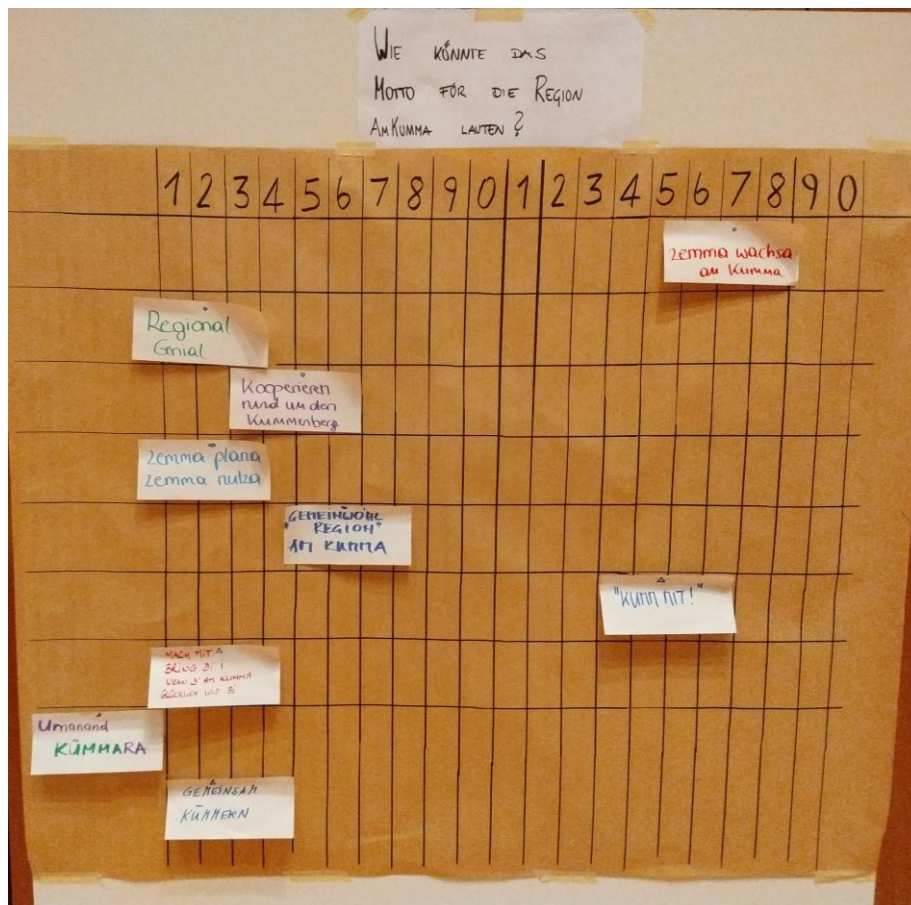 WIE KÖNNTE DAS
MOTTO FÜR DIE REGION
AMKUMMA LAUTEN?
1 2 3 4 5 6 7 8 9 0 1 2 3 4 5 6 7 8 9 0
zemma wachsa
am Kumma
Regional
Genial
Kooperieren
rund um den
Kummenberg
zemma plana
zemma nutza
"GEMEINWOHL
REGION"
AM KUMMA
"KUMM MIT!"
MACH MIT
BRING DI I
WENN D'AM KUMMA
GLÜCKLICH WIT SI
Umanand
KÜMMARA
GEMEINSAM
KÜMMERN